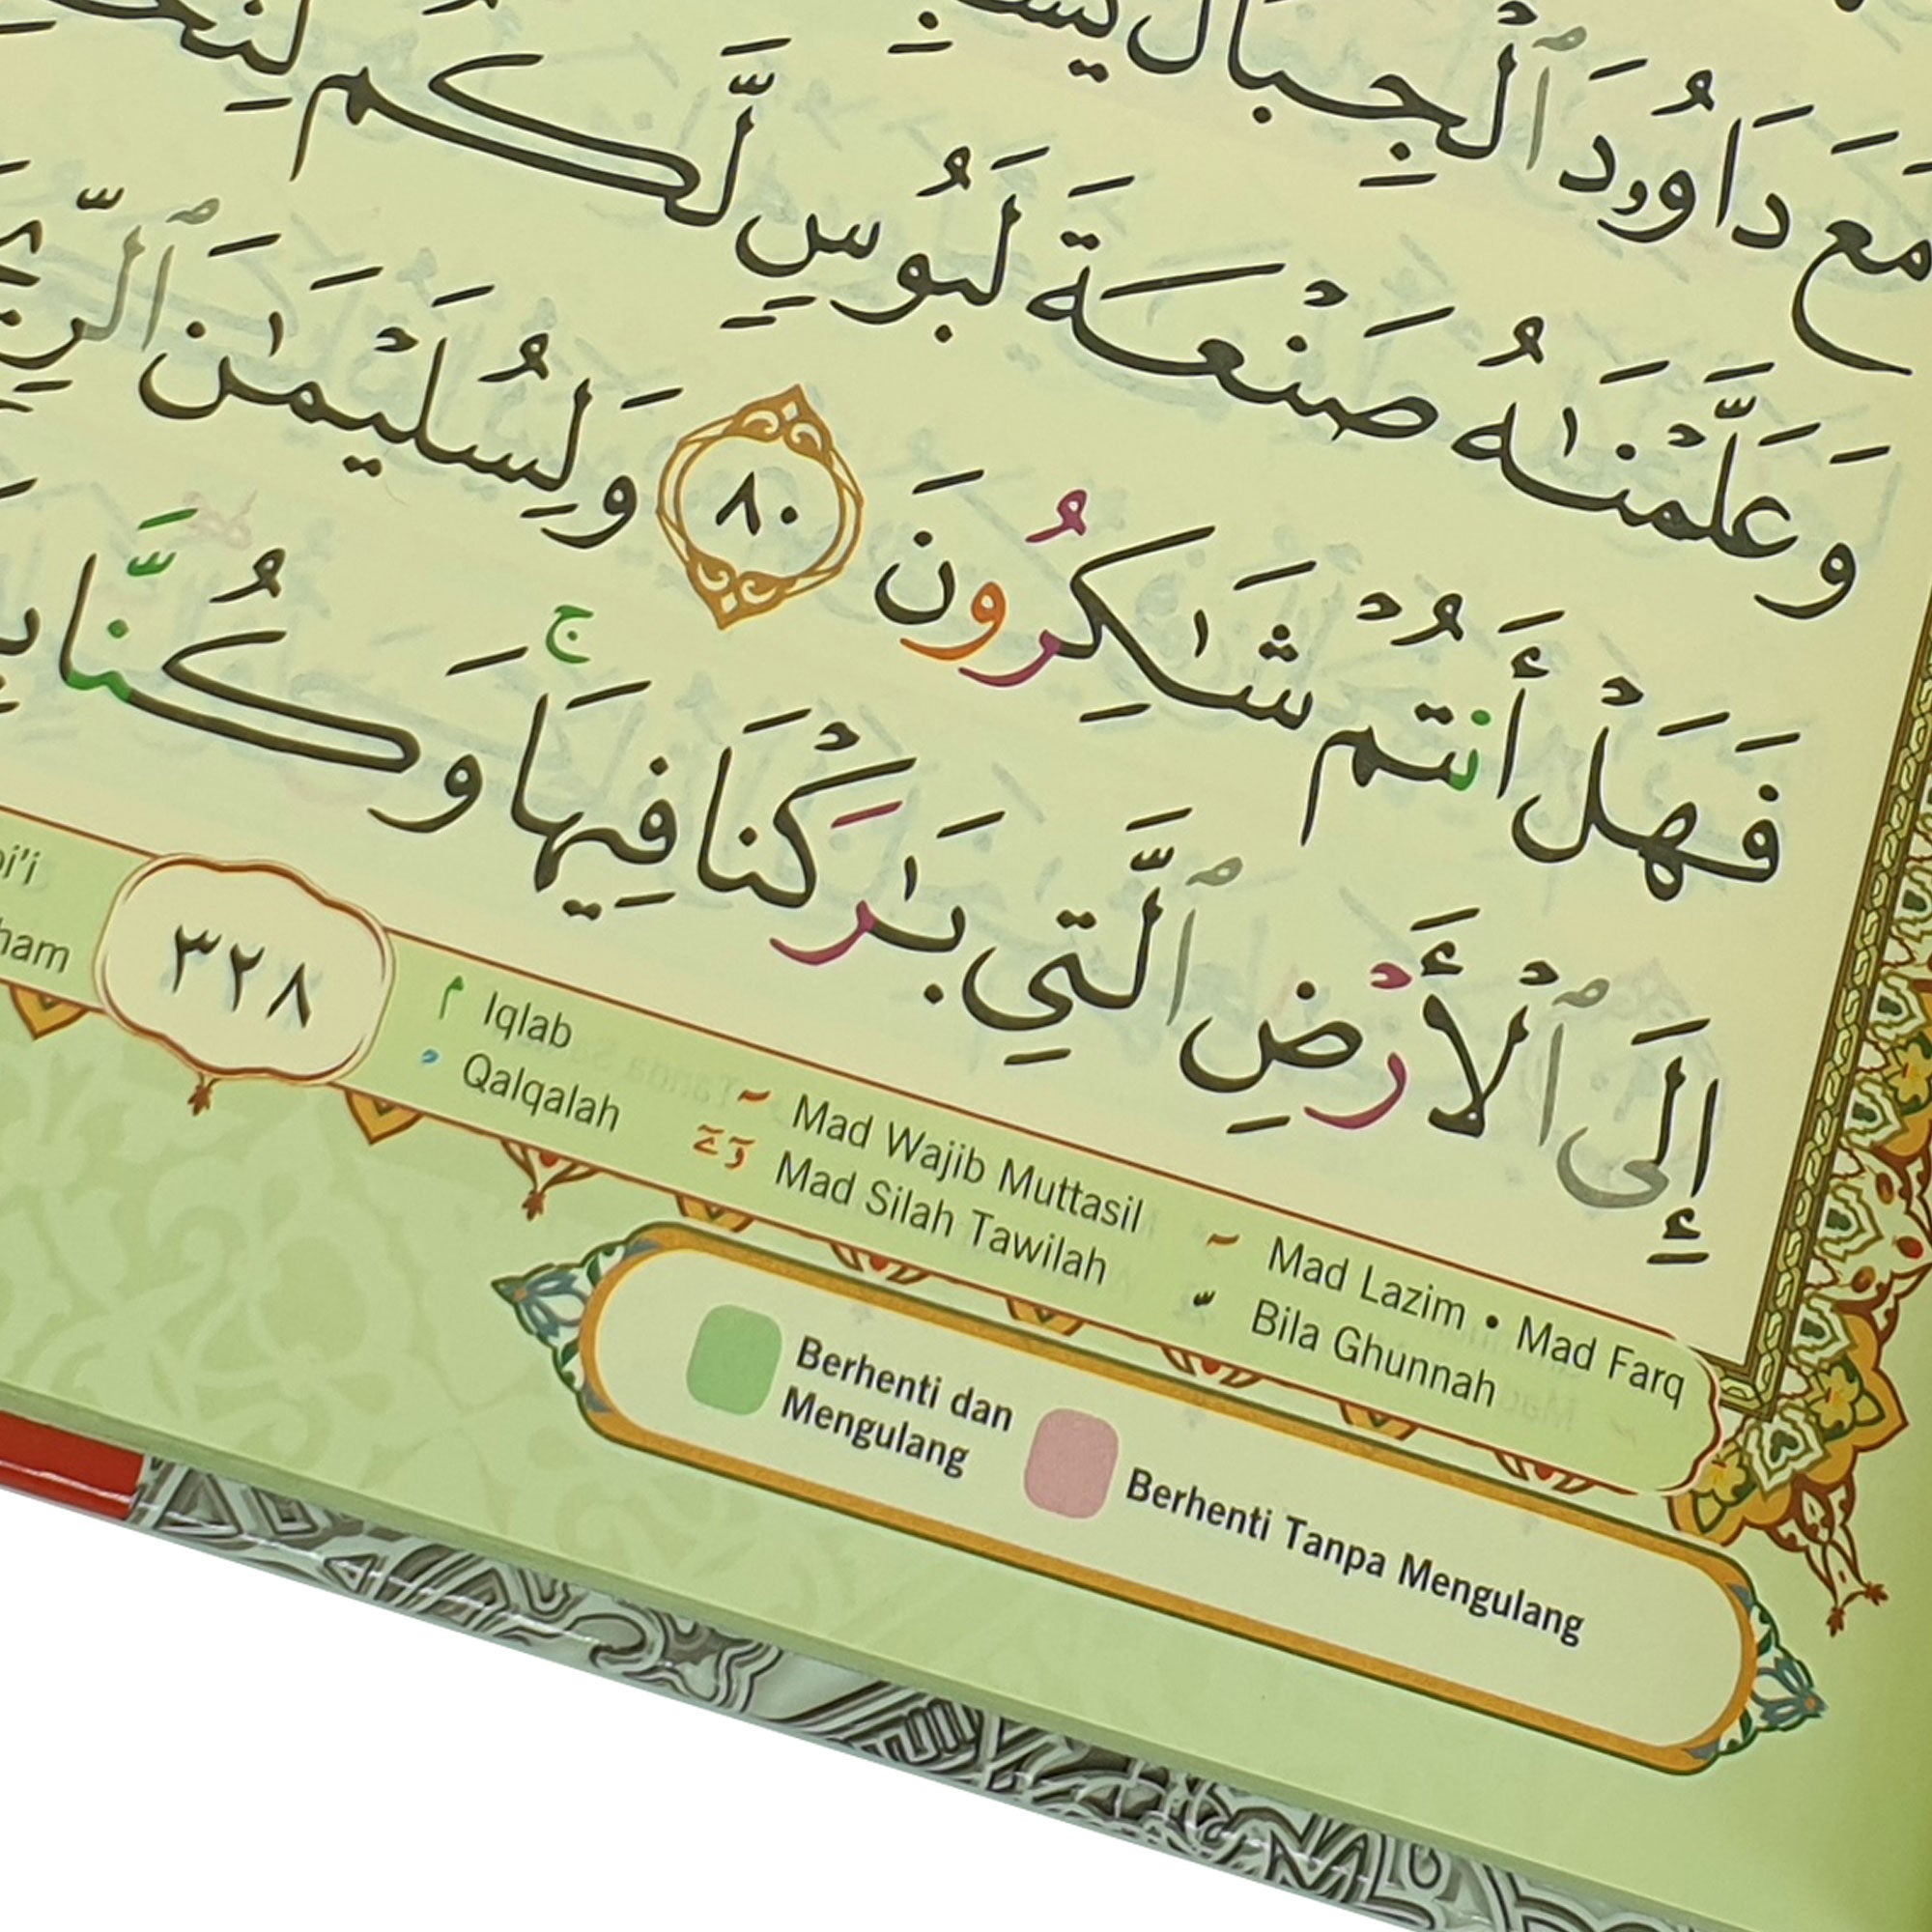 مَعَ دَاوُۥدَ ٱلْجِبَالَ
وَعَلَّمْنَٰهُ صَنْعَةَ لَبُوسٍ لَّكُمْ
فَهَلْ أَنتُمْ شَٰكِرُونَ ٨٠ وَلِسُلَيْمَٰنَ
إِلَى ٱلْأَرْضِ ٱلَّتِي بَٰرَكْنَا فِيهَا ۚ وَكُنَّا
٣٢٨
م Iqlab
Qalqalah
Mad Wajib Muttasil
Mad Silah Tawilah
Mad Lazim • Mad Farq
Bila Ghunnah
Berhenti dan
Mengulang
Berhenti Tanpa Mengulang